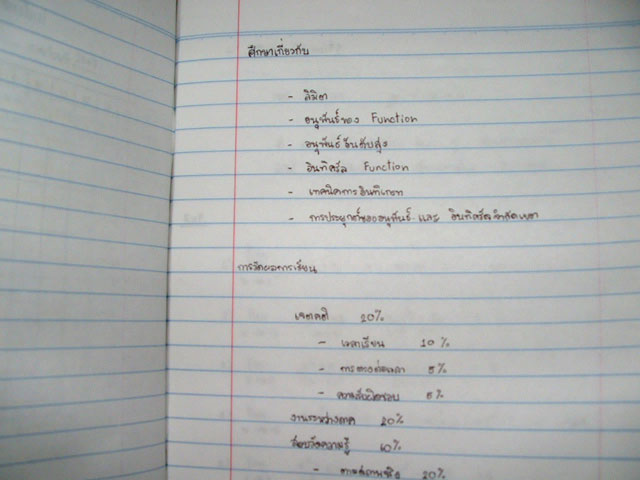 ศึกษาเกี่ยวกับ
- ลิมิต
- อนุพันธ์ของ Function
- อนุพันธ์อันดับสูง
- อินทิกรัล Function
- เทคนิคการอินทิเกรท
- การประยุกต์ของอนุพันธ์ และ อินทิกรัลจำกัดเขต
การวัดผลการเรียน
เจตคติ 20%
- เวลาเรียน 10%
- การตรงต่อเวลา 5%
- ความรับผิดชอบ 5%
งานระหว่างภาค 20%
สอบวัดความรู้ 60%
- 20%